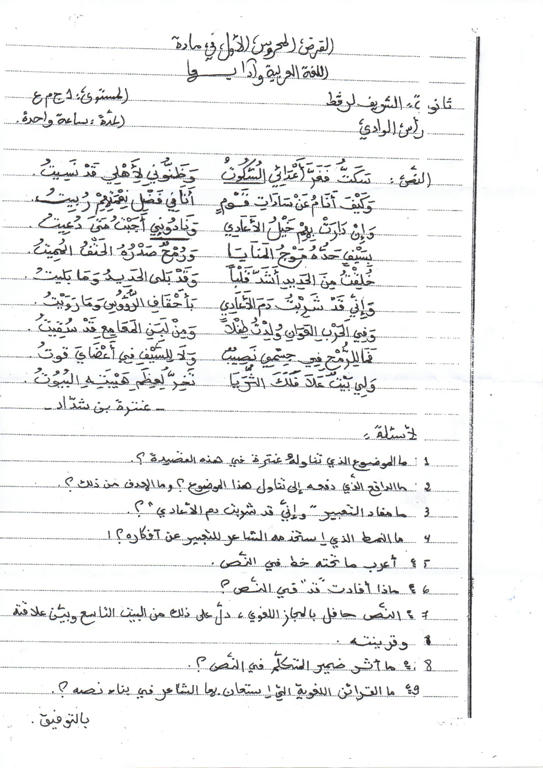 الفرض المحروس الأول في مادة
اللغة العربية وآدابها
ثانوية: الشريف لرقط المستوى: 1 ج م ع
رأس الوادي المدة: ساعة واحدة.
النص: سَكَتُّ فَغَرَّ أَعْدَائِي السُّكُوتُ وَظَنُّونِي لِأَهْلِي قَدْ نَسِيتُ
وَكَيْفَ أَنَامُ عَنْ سَادَاتِ قَوْمٍ أَنَا فِي فَضْلِ نِعْمَتِهِمْ رُبِيتُ
وَإِنْ دَارَتْ بِهِمْ خَيْلُ الأَعَادِي وَنَادُونِي أَجَبْتُ مَتَى دُعِيتُ
بِسَيْفٍ حَدُّهُ مَوْجُ المَنَايَا وَرُمْحٍ صَدْرُهُ الحَتْفُ المُمِيتُ
خُلِقْتُ مِنَ الحَدِيدِ أَشَدَّ قَلْبًا وَقَدْ بَلَى الحَدِيدُ وَمَا بَلِيتُ
وَإِنِّي قَدْ شَرِبْتُ دَمَ الأَعَادِي بِأَقْحَافِ الرُّؤُوسِ وَمَا رَوِيتُ
وَفِي الحَرْبِ العَوَانِ وُلِدْتُ طِفْلًا وَمِنْ لَبَنِ المَعَامِعِ قَدْ سُقِيتُ
فَمَا لِلرُّمْحِ فِي جِسْمِي نَصِيبٌ وَلَا لِلسَّيْفِ فِي أَعْضَايَ قُوتُ
وَلِي بَيْتٌ عَلَا فَلَكَ الثُّرَيَّا تَخِرُّ لِعِظَمِ هَيْبَتِهِ البُيُوتُ
- عنترة بن شداد -
لأسئلة:
1 ما الموضوع الذي تناوله عنترة في هذه القصيدة؟
2 ما الدافع الذي دفعه إلى تناول هذا الموضوع؟ وما الهدف من ذلك؟
3 ما مفاد التعبير "وإنّي قد شربت دم الأعادي"؟
4 ما النمط الذي استخدمه الشاعر للتعبير عن أفكاره؟
5 أعرب ما تحته خط في النّص.
6 ماذا أفادت "قد" في النّص؟
7 النّص حافل بالمجاز اللغوي، دلّ على ذلك من البيت التاسع وبيّن علاقته
وقرينته.
8 ما أثر ضمير المتكلّم في النّص؟
9 ما القرائن اللغوية التي استعان بها الشاعر في بناء نصه؟
بالتوفيق.